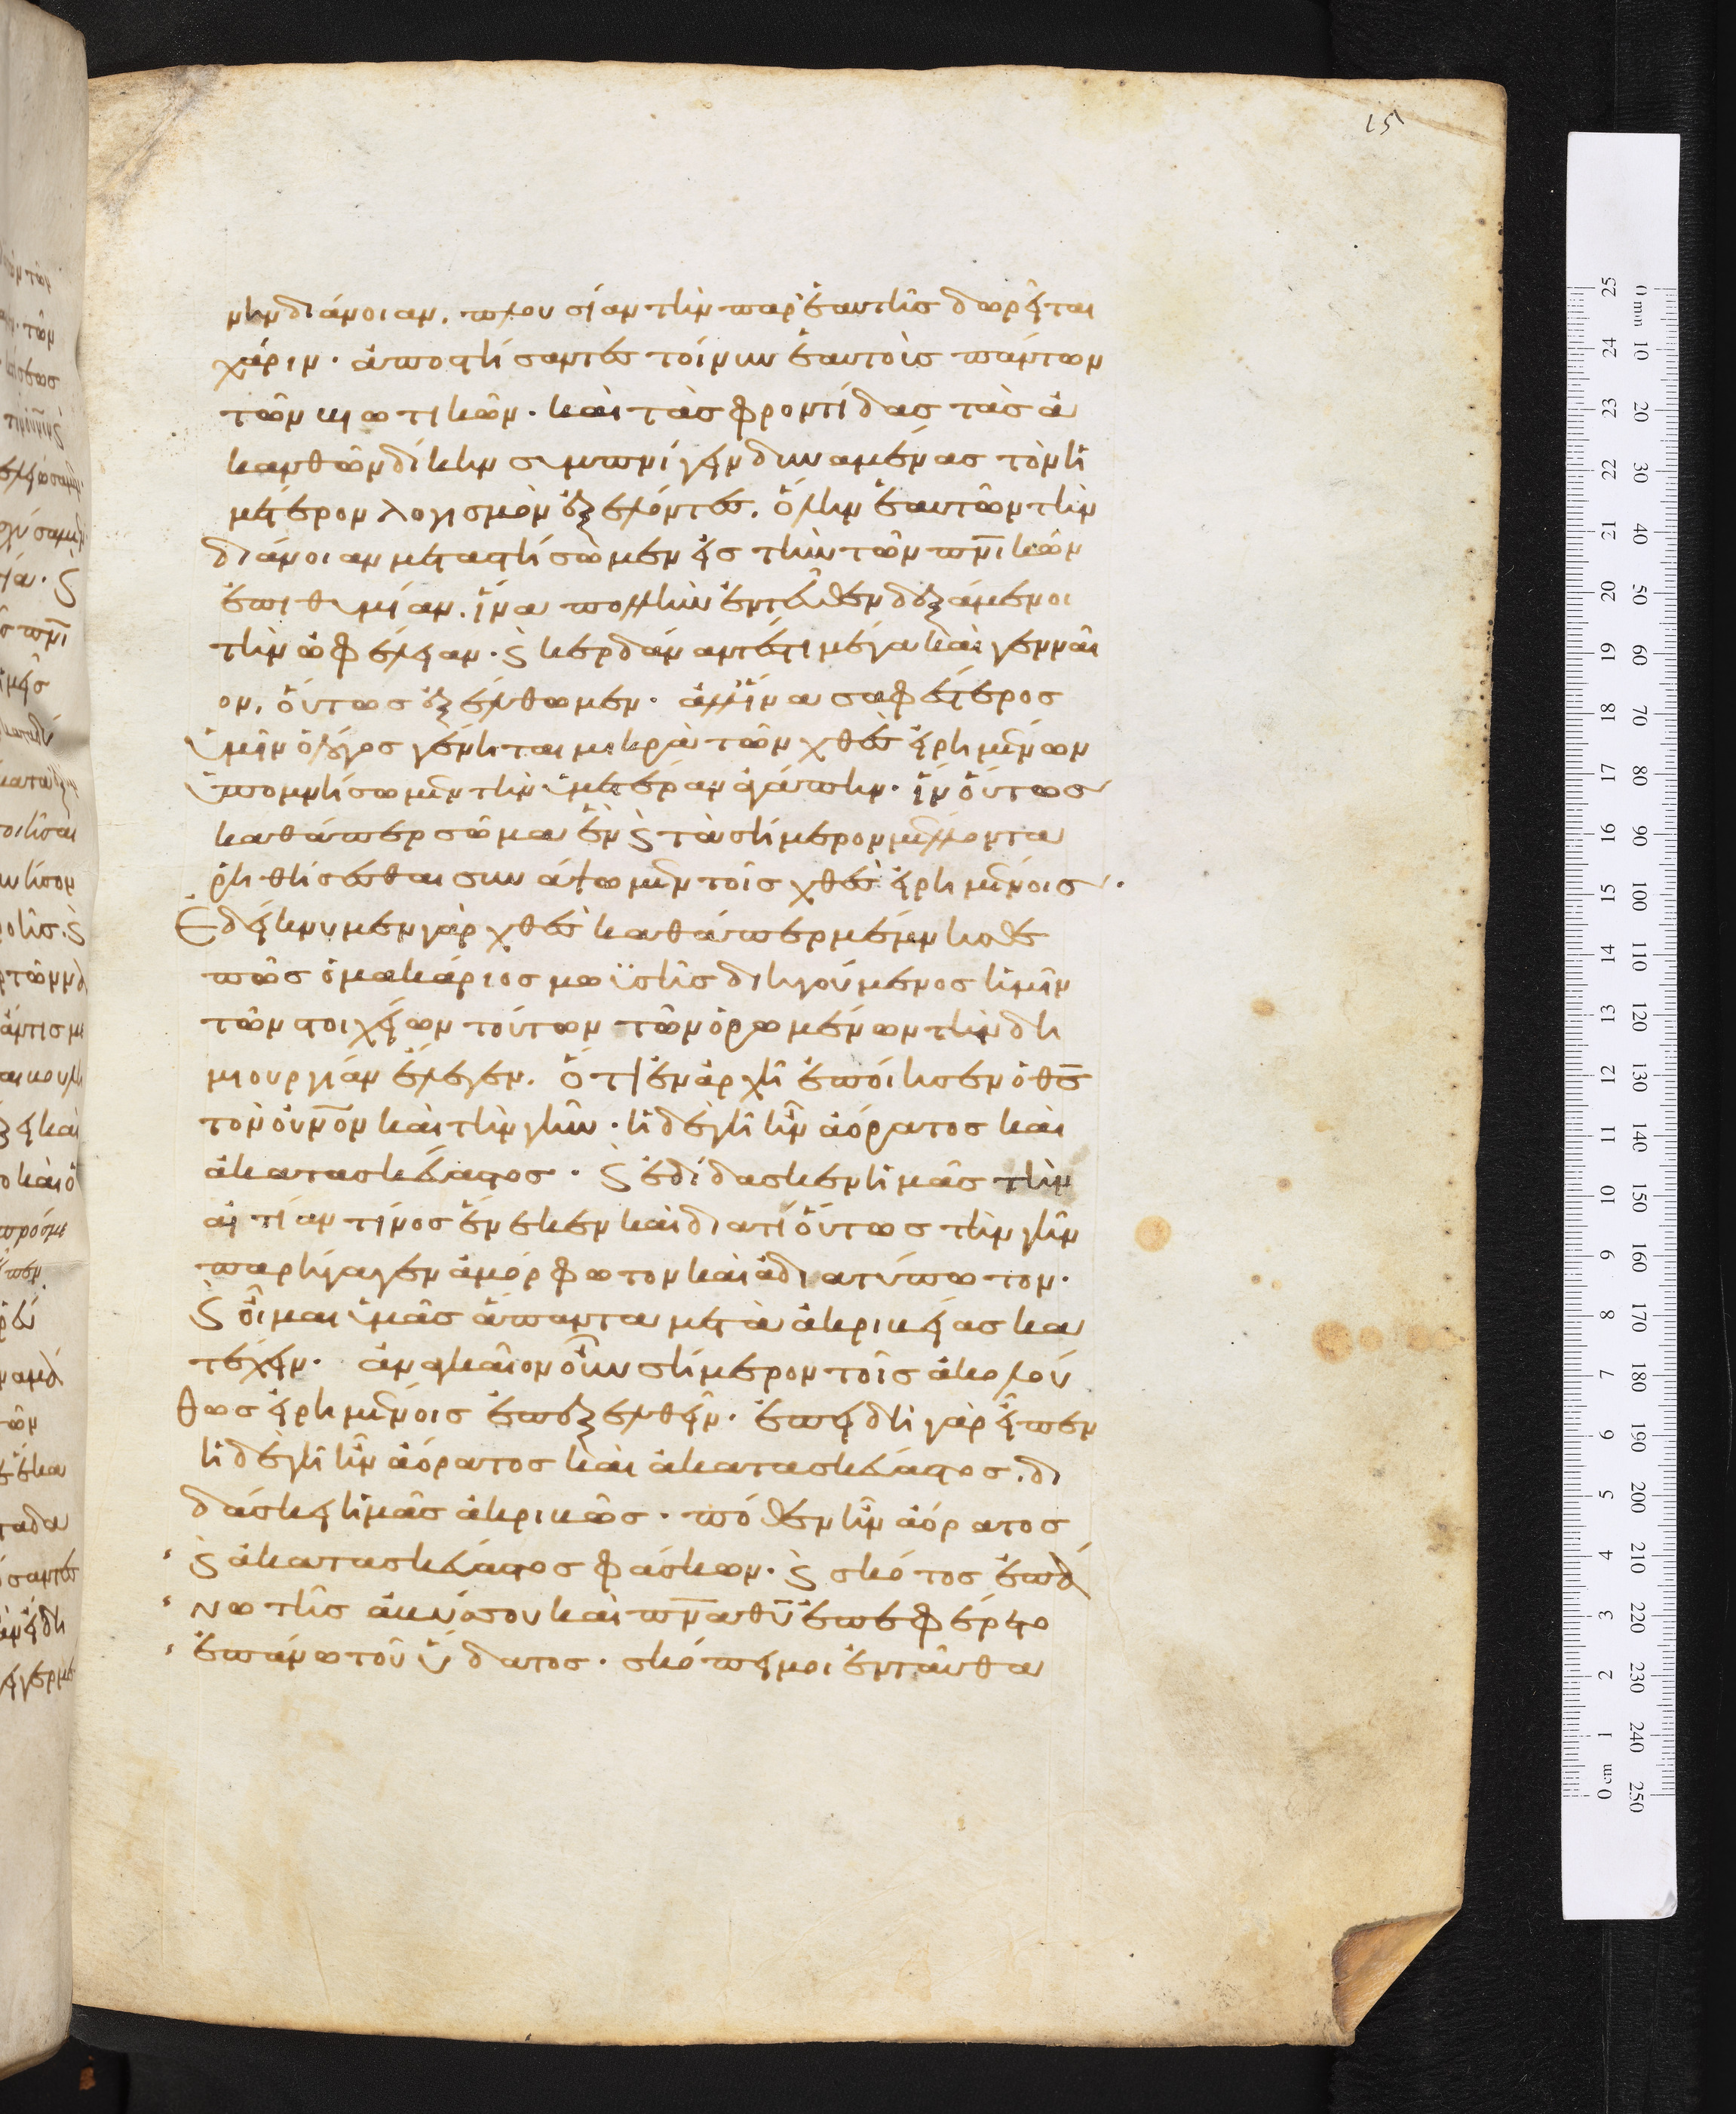 15
μην διάνοιαν, πλουσίαν τὴν παρ' ἑαυτῆς δωρεῖται
χάριν. ἀποστήσαντες τοίνυν ἑαυτοὺς πάντων
τῶν βιωτικῶν. καὶ τὰς φροντίδας τὰς ἀ
κανθῶν δίκην συμπνίγειν δυναμένας τὸν ἡ
μέτερον λογισμὸν ἐξελόντες, ὅλην ἑαυτῶν τὴν
διάνοιαν μεταστήσωμεν εἰς τὴν τῶν πνικῶν
ἐπιθυμίαν. ἵνα πολλὴν ἐντεῦθεν δεξάμενοι
τὴν ὠφέλειαν. ϗ κερδάναντές τι μέγα καὶ γενναῖ
ον, οὕτως ἐξέλθωμεν. ἀλλ' ἵνα σαφέστερος
ὑμῖν ὁ λόγος γένηται μικρὰ τῶν χθὲς εἰρημένων
ὑπομνήσωμεν τὴν ὑμετέραν ἀγάπην. ἵν' οὕτως
καθάπερ σῶμα ἓν ϗ τὰ σήμερον μέλλοντα
ῥηθήσεσθαι συνάψωμεν τοῖς χθὲς εἰρημένοις.
Ἐδείκνυμεν γὰρ χθὲς καθάπερ μέμνησθε
πῶς ὁ μακάριος μωϋσῆς διηγούμενος ἡμῖν
τῶν στοιχείων τούτων τῶν ὁρωμένων τὴν δη
μιουργίαν ἔλεγεν. ὅτι ἐν ἀρχῇ ἐποίησεν ὁ θς
τὸν οὐνον καὶ τὴν γῆν. ἡ δὲ γῆ ἦν ἀόρατος καὶ
ἀκατασκεύαστος. ϗ ἐδίδασκεν ἡμᾶς τὴν
αἰτίαν τίνος ἕνεκεν καὶ διατί οὕτως τὴν γῆν
παρήγαγεν ἀμόρφωτον καὶ ἀδιατύπωτον.
ϗ οἶμαι ὑμᾶς ἅπαντα μετὰ ἀκριβείας κα
τέχειν. ἀναγκαῖον οὖν σήμερον τοῖς ἀκολού
θως εἰρημένοις ἐπεξελθεῖν. ἐπειδὴ γὰρ εἶπεν
ἡ δὲ γῆ ἦν ἀόρατος καὶ ἀκατασκεύαστος, δι
δάσκει ἡμᾶς ἀκριβῶς. πόθεν ἦν ἀόρατος
ϗ ἀκατασκεύαστος φάσκων. ϗ σκότος ἐπά
νω τῆς ἀβύσσου καὶ πνα θυ ἐπεφέρετο
ἐπάνω τοῦ ὕδατος. σκόπει μοι ἐνταῦθα